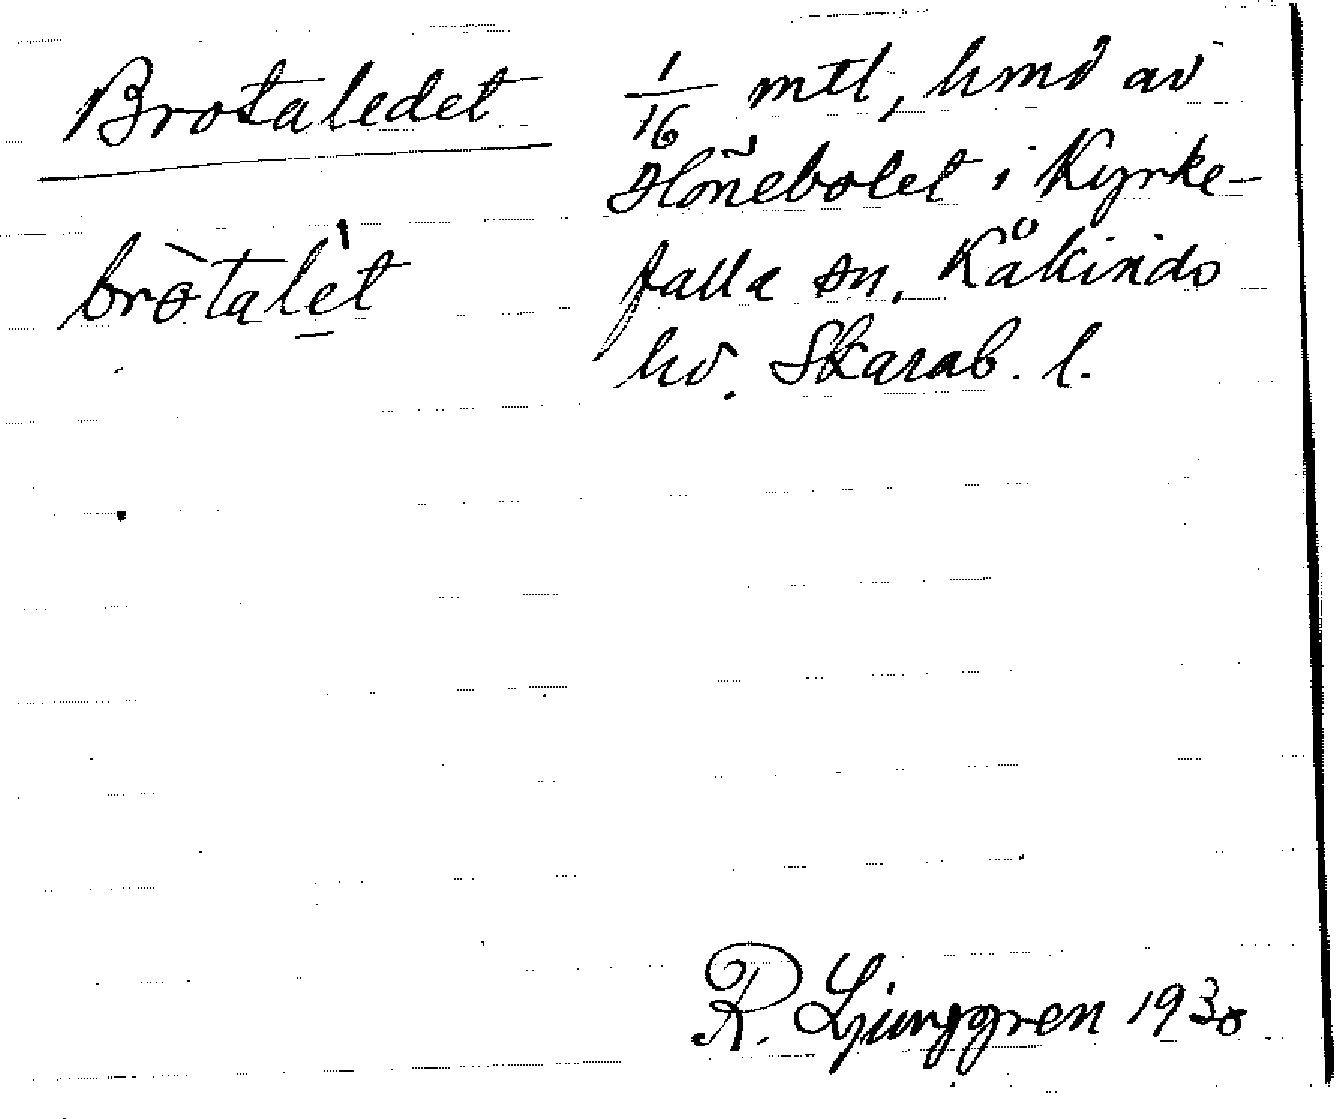 Brotaledet
bròtalét
1/16 mtl, hmd av
Hönebolet i Kyrke-
falla sn, Kåkinds
hd. Skarab. l.
R. Ljunggren 1930